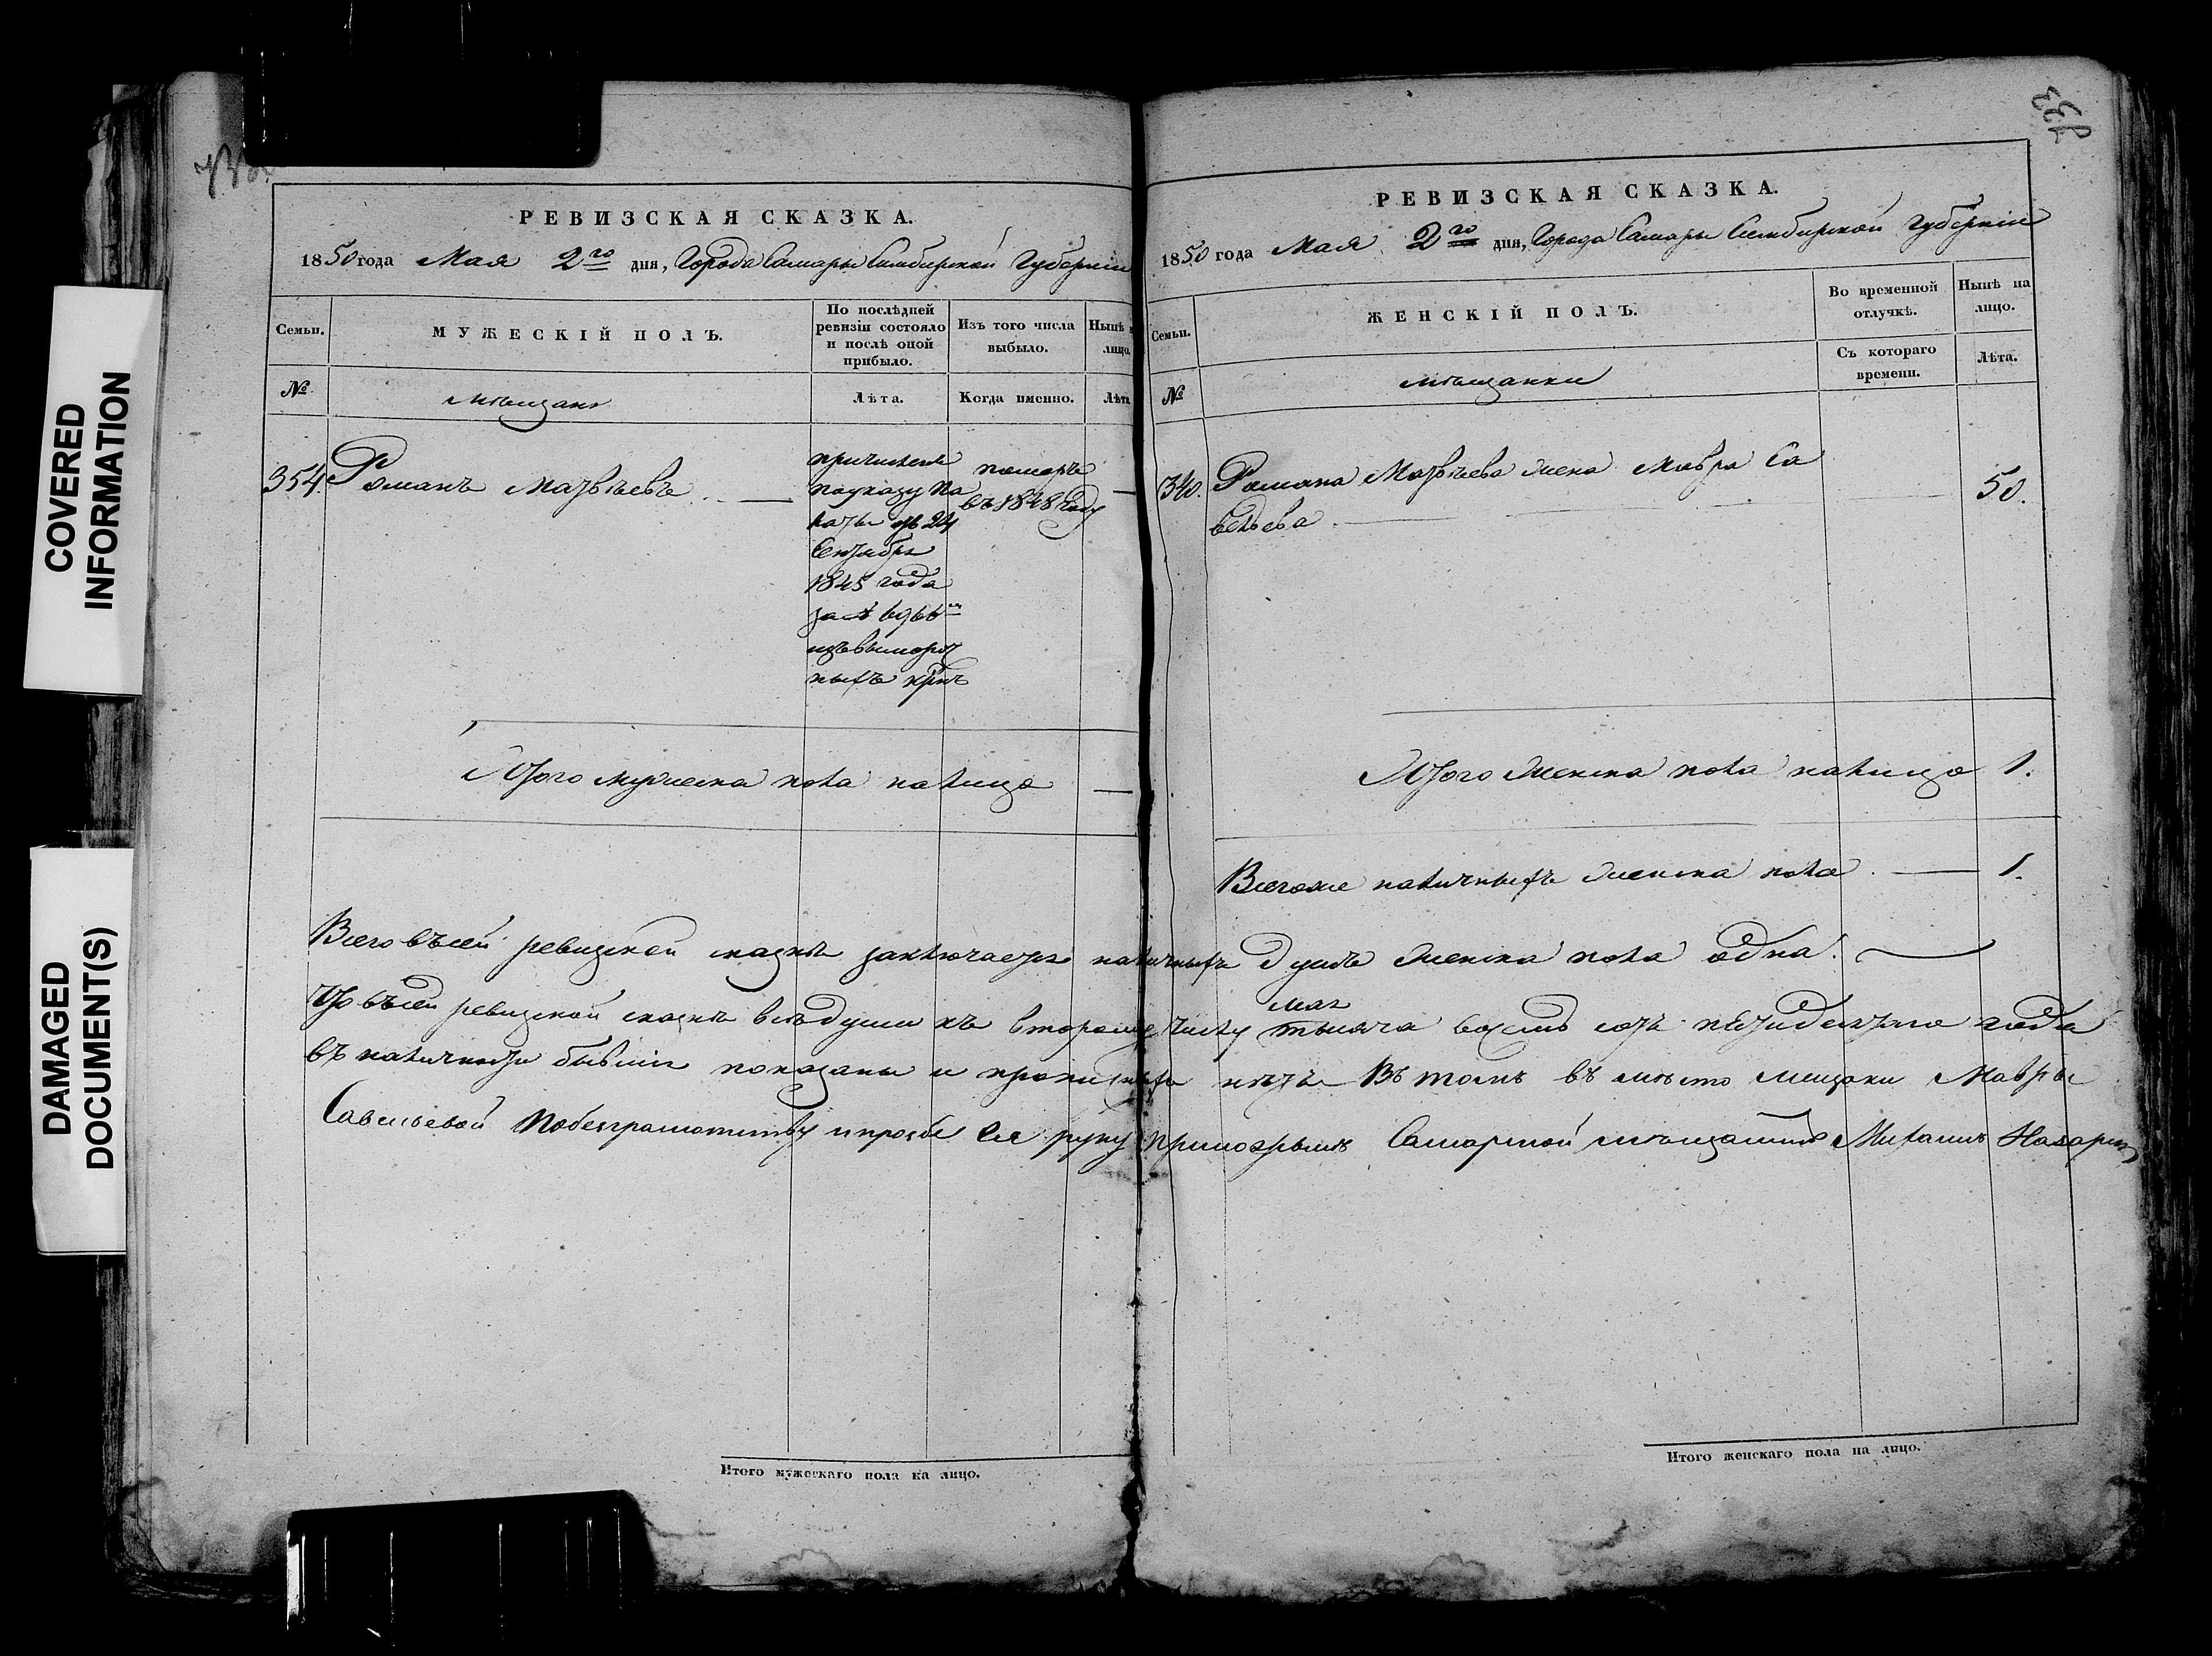 COVERED
INFORMATION
DAMAGED
DOCUMENT(S)
РЕВИЗСКАЯ СКАЗКА.
1850 года Мая 2го дня, Города Самары Симбирской Губернии
Семьи.
МУЖЕСКІЙ ПОЛЪ.
По послѣдней ревизіи состояло и послѣ оной прибыло.
Изъ того числа выбыло.
Нынѣ
лицо.
№
мѣщане
Лѣта.
Когда именно.
Лѣта
354. Романъ Матвѣевъ
причислены
по указу Па
латы отъ 24
Сентября
1845 года
ныхъ
померъ
въ 1848 году
Итого мужеска пола налицо —
Итого мужескаго пола на лицо.
733
РЕВИЗСКАЯ СКАЗКА.
1850 года Мая 2го дня, Города Самары Симбирской Губерніи
Семьи.
ЖЕНСКІЙ ПОЛЪ.
Во временной отлучкѣ.
Нынѣ на лицо.
№
мѣщанки
Съ котораго времени.
Лѣта.
340. Романа Матвѣева жена Мавра Са 50.
вельева
Итого женска пола налицо 1.
Всегоже наличныхъ женска пола 1.
Всего въ сей ревизской сказкѣ заключается наличныхъ душъ женска пола одна.
мая
Что въ сей ревизской сказкѣ всѣ души къ второму числу тысяча восемь сотъ пятидесятаго года
въ наличности бывшія показаны и прописныхъ нѣтъ Въ томъ въ мѣсто мещанки Мавры
Савельевой по безграмотству и прозбе ея руку приложилъ Самарской мѣщанинъ
Итого женскаго пола на лицо.